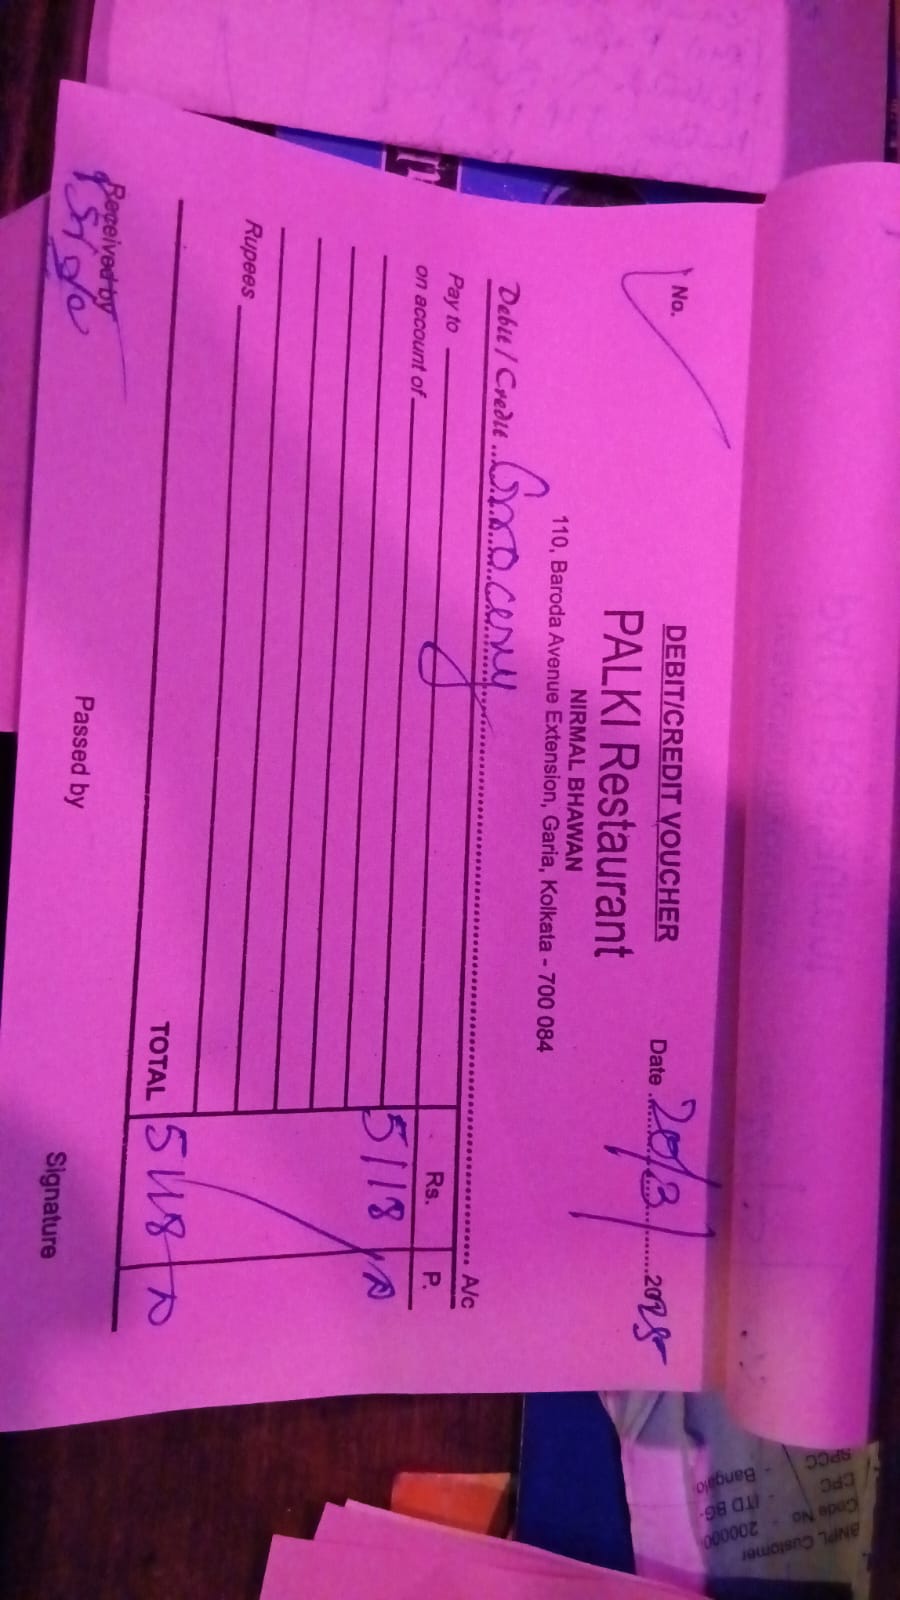 No.
DEBIT/CREDIT VOUCHER
Date 20/3/2025
PALKI Restaurant
NIRMAL BHAWAN
110, Baroda Avenue Extension, Garia, Kolkata - 700 084
Debit / Credit Grocery A/c
Pay to
on account of
Rs. P.
5118
Rupees
TOTAL 5118
Received by
Passed by
Signature
BNPL Customer
Code No - 200000
CPC - ITD BG-
SPCC - Bangalo